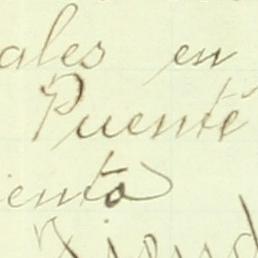 ales en
Puente
iento